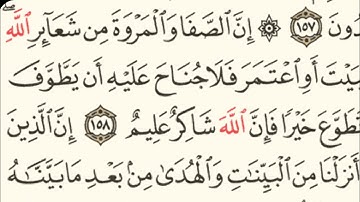 دُونَ ١٥٧ ۞ إِنَّ ٱلصَّفَا وَٱلْمَرْوَةَ مِن شَعَآئِرِ ٱللَّهِ
بَيْتَ أَوِ ٱعْتَمَرَ فَلَا جُنَاحَ عَلَيْهِ أَن يَطَّوَّفَ
تَطَوَّعَ خَيْرًا فَإِنَّ ٱللَّهَ شَاكِرٌ عَلِيمٌ ١٥٨ إِنَّ ٱلَّذِينَ
أَنزَلْنَا مِنَ ٱلْبَيِّنَٰتِ وَٱلْهُدَىٰ مِنۢ بَعْدِ مَا بَيَّنَّٰهُ